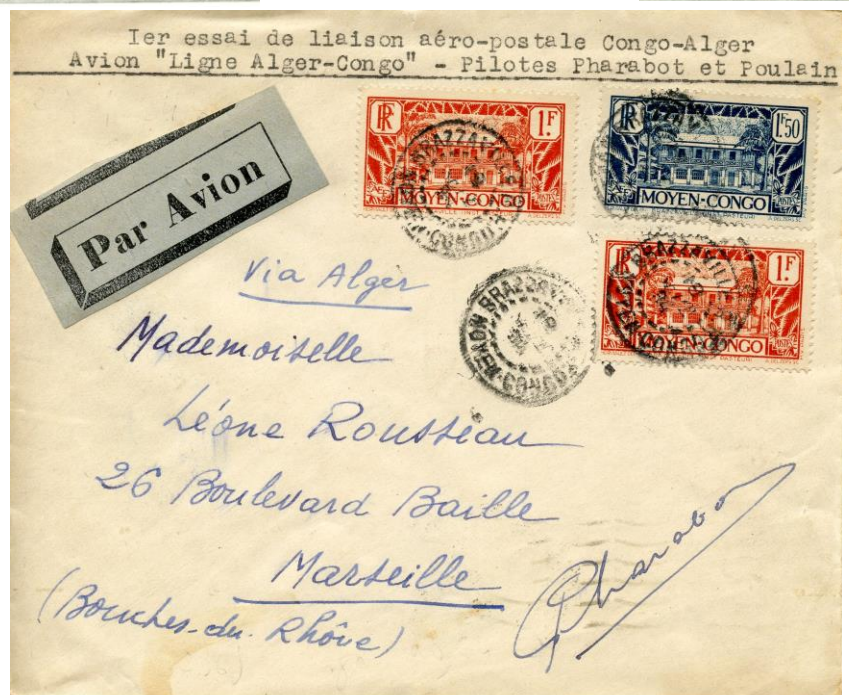 Ier essai de liaison aéro-postale Congo-Alger
Avion "Ligne Alger-Congo" - Pilotes Pharabot et Poulain
Par Avion
RF 1F
MOYEN-CONGO
RF 1F50
MOYEN-CONGO
RF 1F
MOYEN-CONGO
BRAZZAVILLE
MOYEN CONGO
Via Alger
Mademoiselle
Léone Rousseau
26 Boulevard Baille
Marseille
(Bouches-du-Rhône)
Pharabo